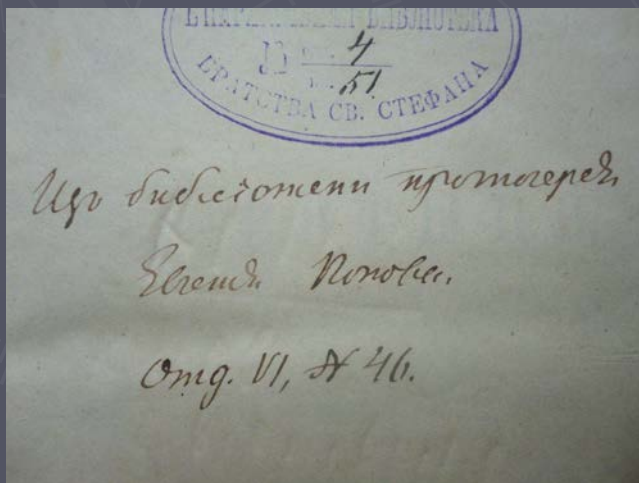 ЕПАРХІАЛЬНАЯ БИБЛІОТЕКА
4
51
БРАТСТВА СВ. СТЕФАНА
Изъ библіотеки протоіерея
Евгенія Попова.
Отд. VI, № 46.